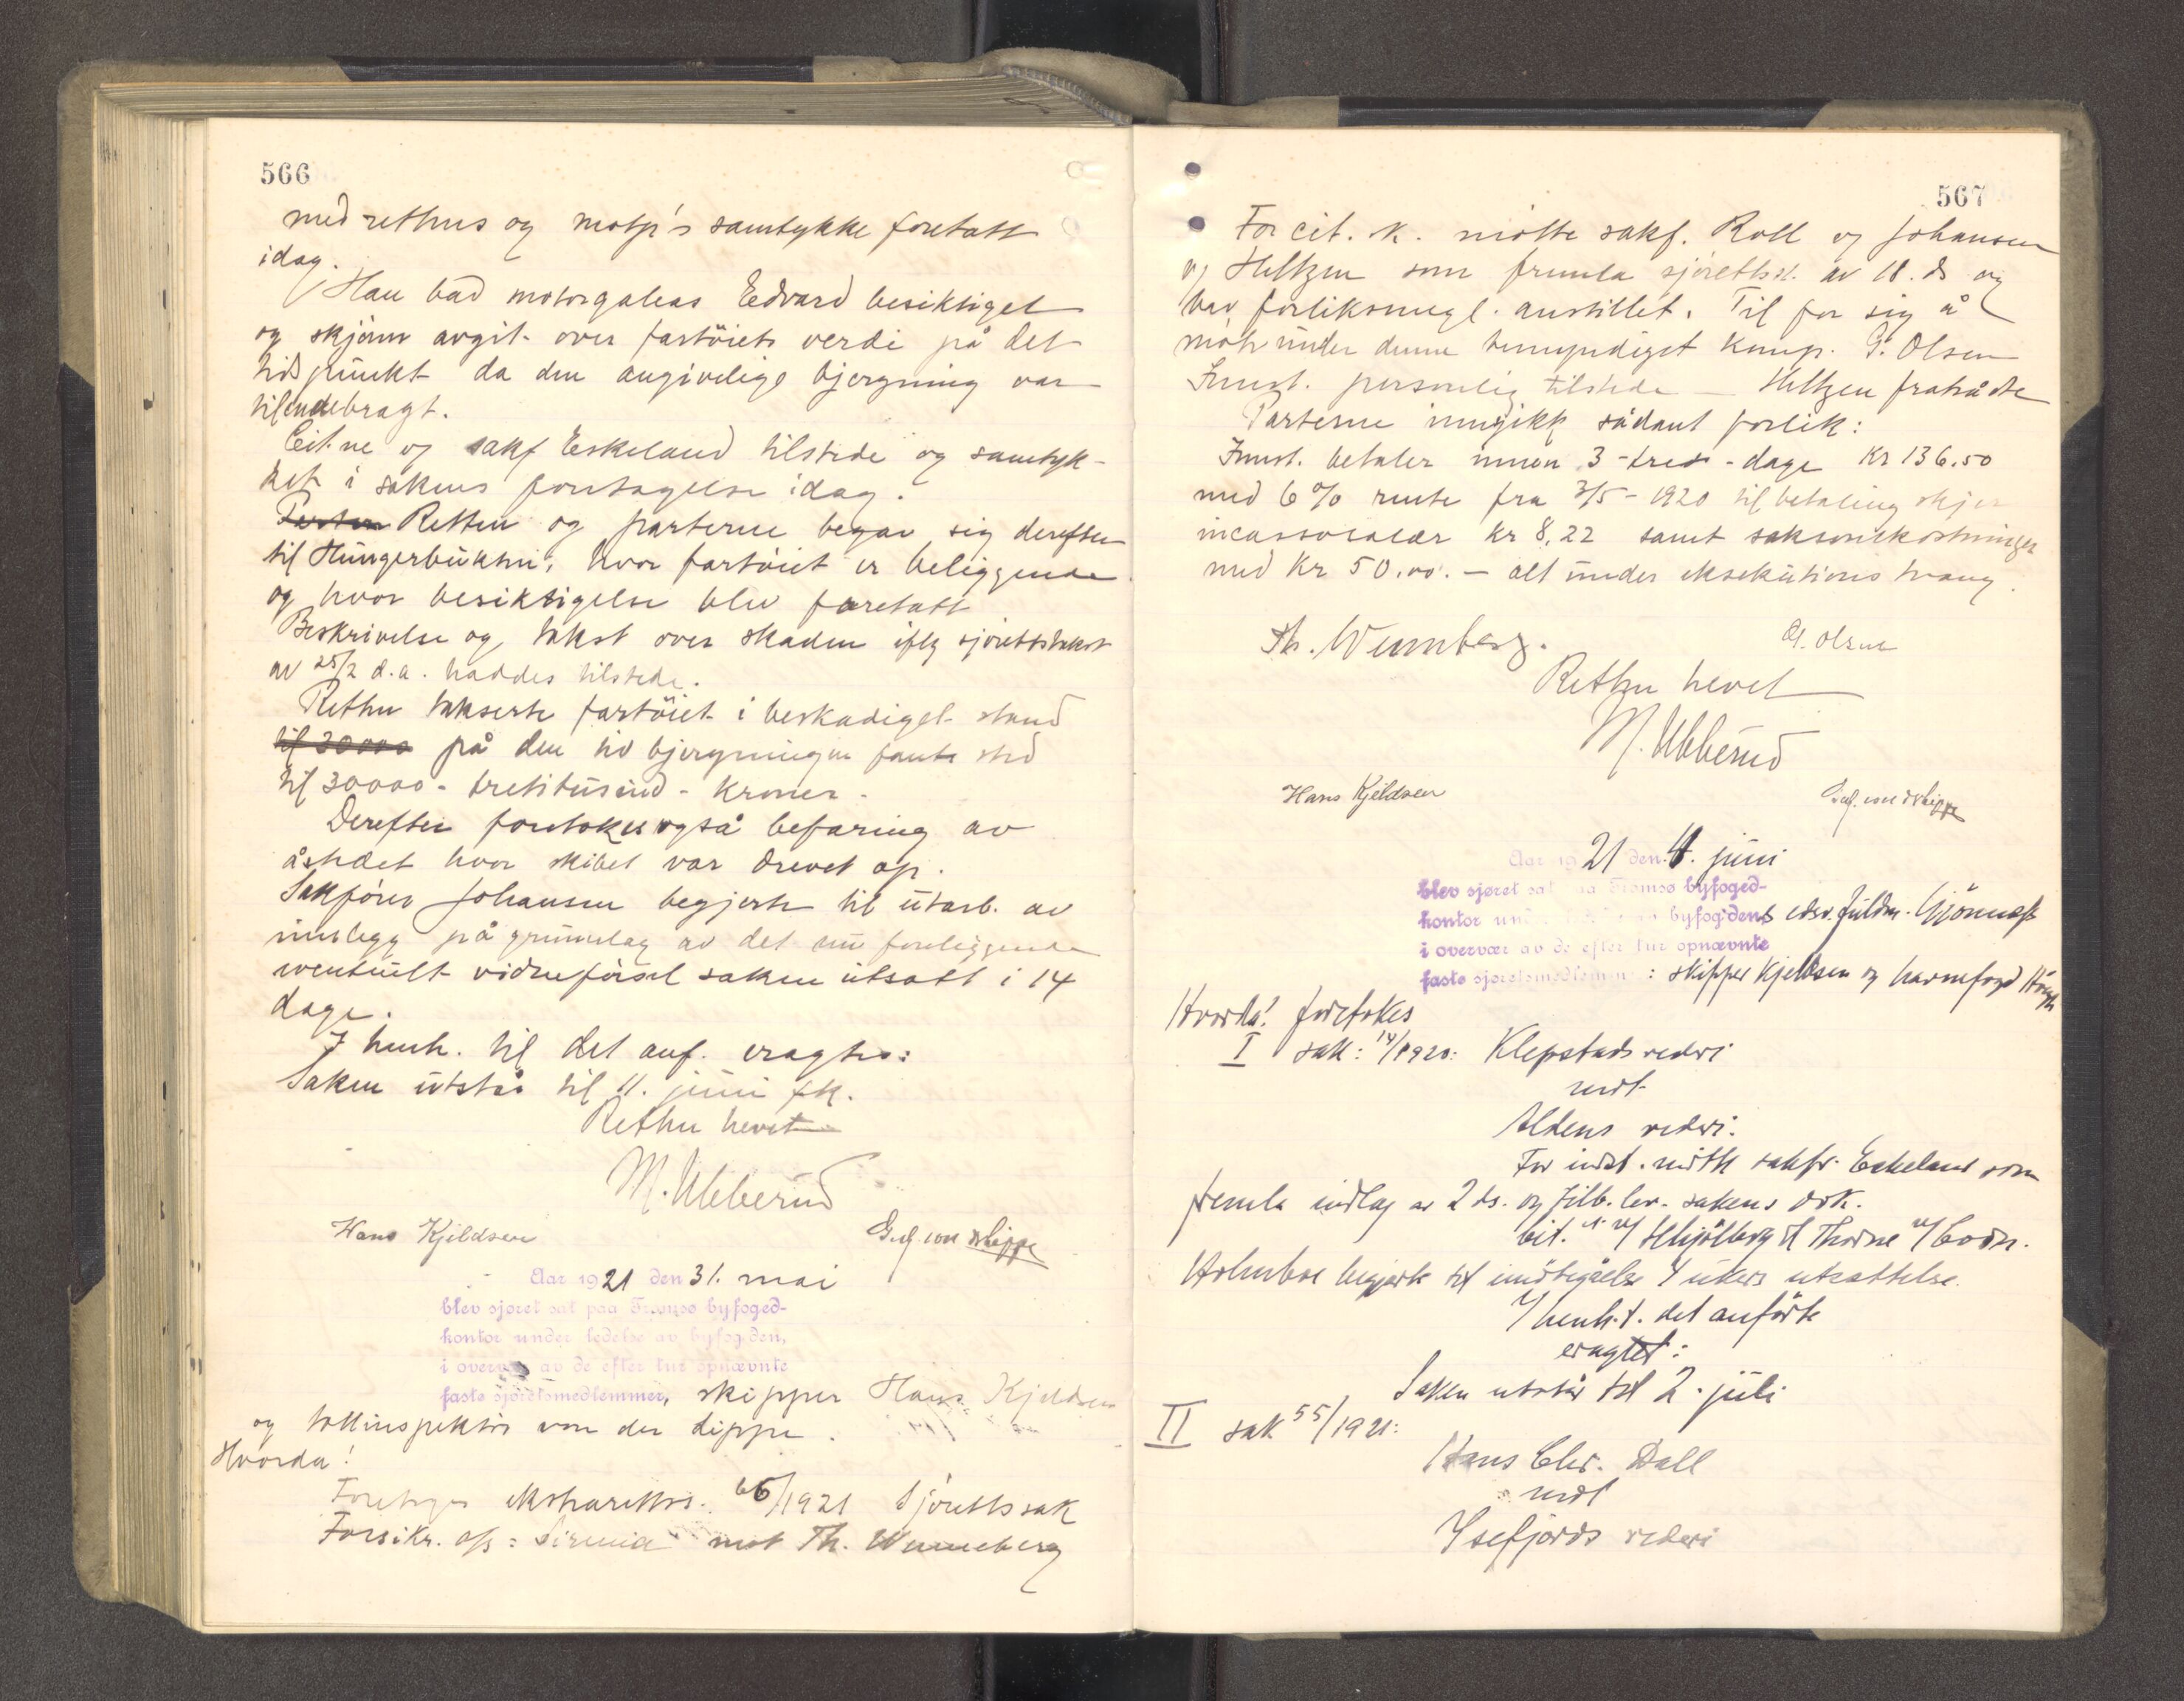 566
med rettens og motp's samtykke foretatt
idag.
Han bad motorgaleas Edvard besiktiget
og skjønn avgit over fartöiets verdi på det
tidspunkt da den angivelige bjergning var
tilendebragt.
Cit.ne og sakf Eskeland tilstede og samtyk-
ket i sakens foretagelse idag.
Retten og parterne begav sig derefter
til Hungerbukten, hvor fartöiet er beliggende
og hvor besiktigelse blev foretatt
Beskrivelse og takst over skaden iflg sjöretstakst
av 25/2 d.a. haddes tilstede.
Retten takserte fartöiet i beskadiget stand
til 30000 på den tid bjergningen fant sted
til 30000 - trettitusind - kroner -
Derefter foretokes også befaring av
åstedet hvor skibet var drevet op.
Sakförer Johansen begjerte til utarb. av
innlegg på grunnlag av det nu foreliggende
eventuelt vidneförsel saken utsatt i 14
dage.
I henh. til det anf. eragtes:
Saken utstår til 11. juni fk.
Retten hevet
M. Ubberud
Hans Kjeldsen
von d Lippe
Aar 1921 den 31. mai
blev sjøret sat paa Tromsø byfoged-
kontor under ledelse av byfogden,
i overvær av de efter tur opnævnte
faste sjøretsmedlemmer, skipper Hans Kjeldsen
og tollinspektör von der Lippe.
Hvorda!
Foretoges ekstrarettss. 66/1921 Sjörettssak
Forsikr. A/s: Sirena mot Th. Wenneberg
567
For cit. n. mötte sakf. Roll og Johansen
v/ Heltzen som fremla sjörettsst. av 18. ds og
bav forliksmegl. anstillet. Til for sig å
möte under denne bemyndiget kemp. G. Olsen
Innst. personlig tilstede - Heltzen fratrådte
Parterne inngikk sådant forlik:
Innst. betaler innen 3 - tre - dage kr 136.50
med 6 % rente fra 3/5 - 1920 til betaling skjer
incassosalær kr 8.22 samt saksomkostninger
med kr 50.00. - alt under eksekutions tvang.
Th. Wenneberg.
G. Olsen
Retten hevet
M. Ubberud
Hans Kjeldsen
von d Lippe
Aar 1921 den 4. juni
blev sjøret sat paa Tromsø byfoged-
kontor und byfogdens edsv. fuldm. Gjönnæss
i overvær av de efter tur opnævnte
faste sjøretsmedlemmer: skipper Kjeldsen og havnefogd
Hvorda! foretokes
I sak: 14/1920: Klepstads rederi
mot
Aldens rederi.
For indst. mötte sakfr. Eskeland som
fremla indlæg av 2 ds. og tilb.lev. sakens dok.
Cit. n. v/ Hjölberg & Thorne v/ Coörn.
Holmboe begjærte til imötegåelse 4 ukers utsættelse.
I henh. t. det anförte
eragtet:
Saken utstår til 2. juli
II sak 55/1921:
Hans Chr. Dall
mot
Ysefjords rederi